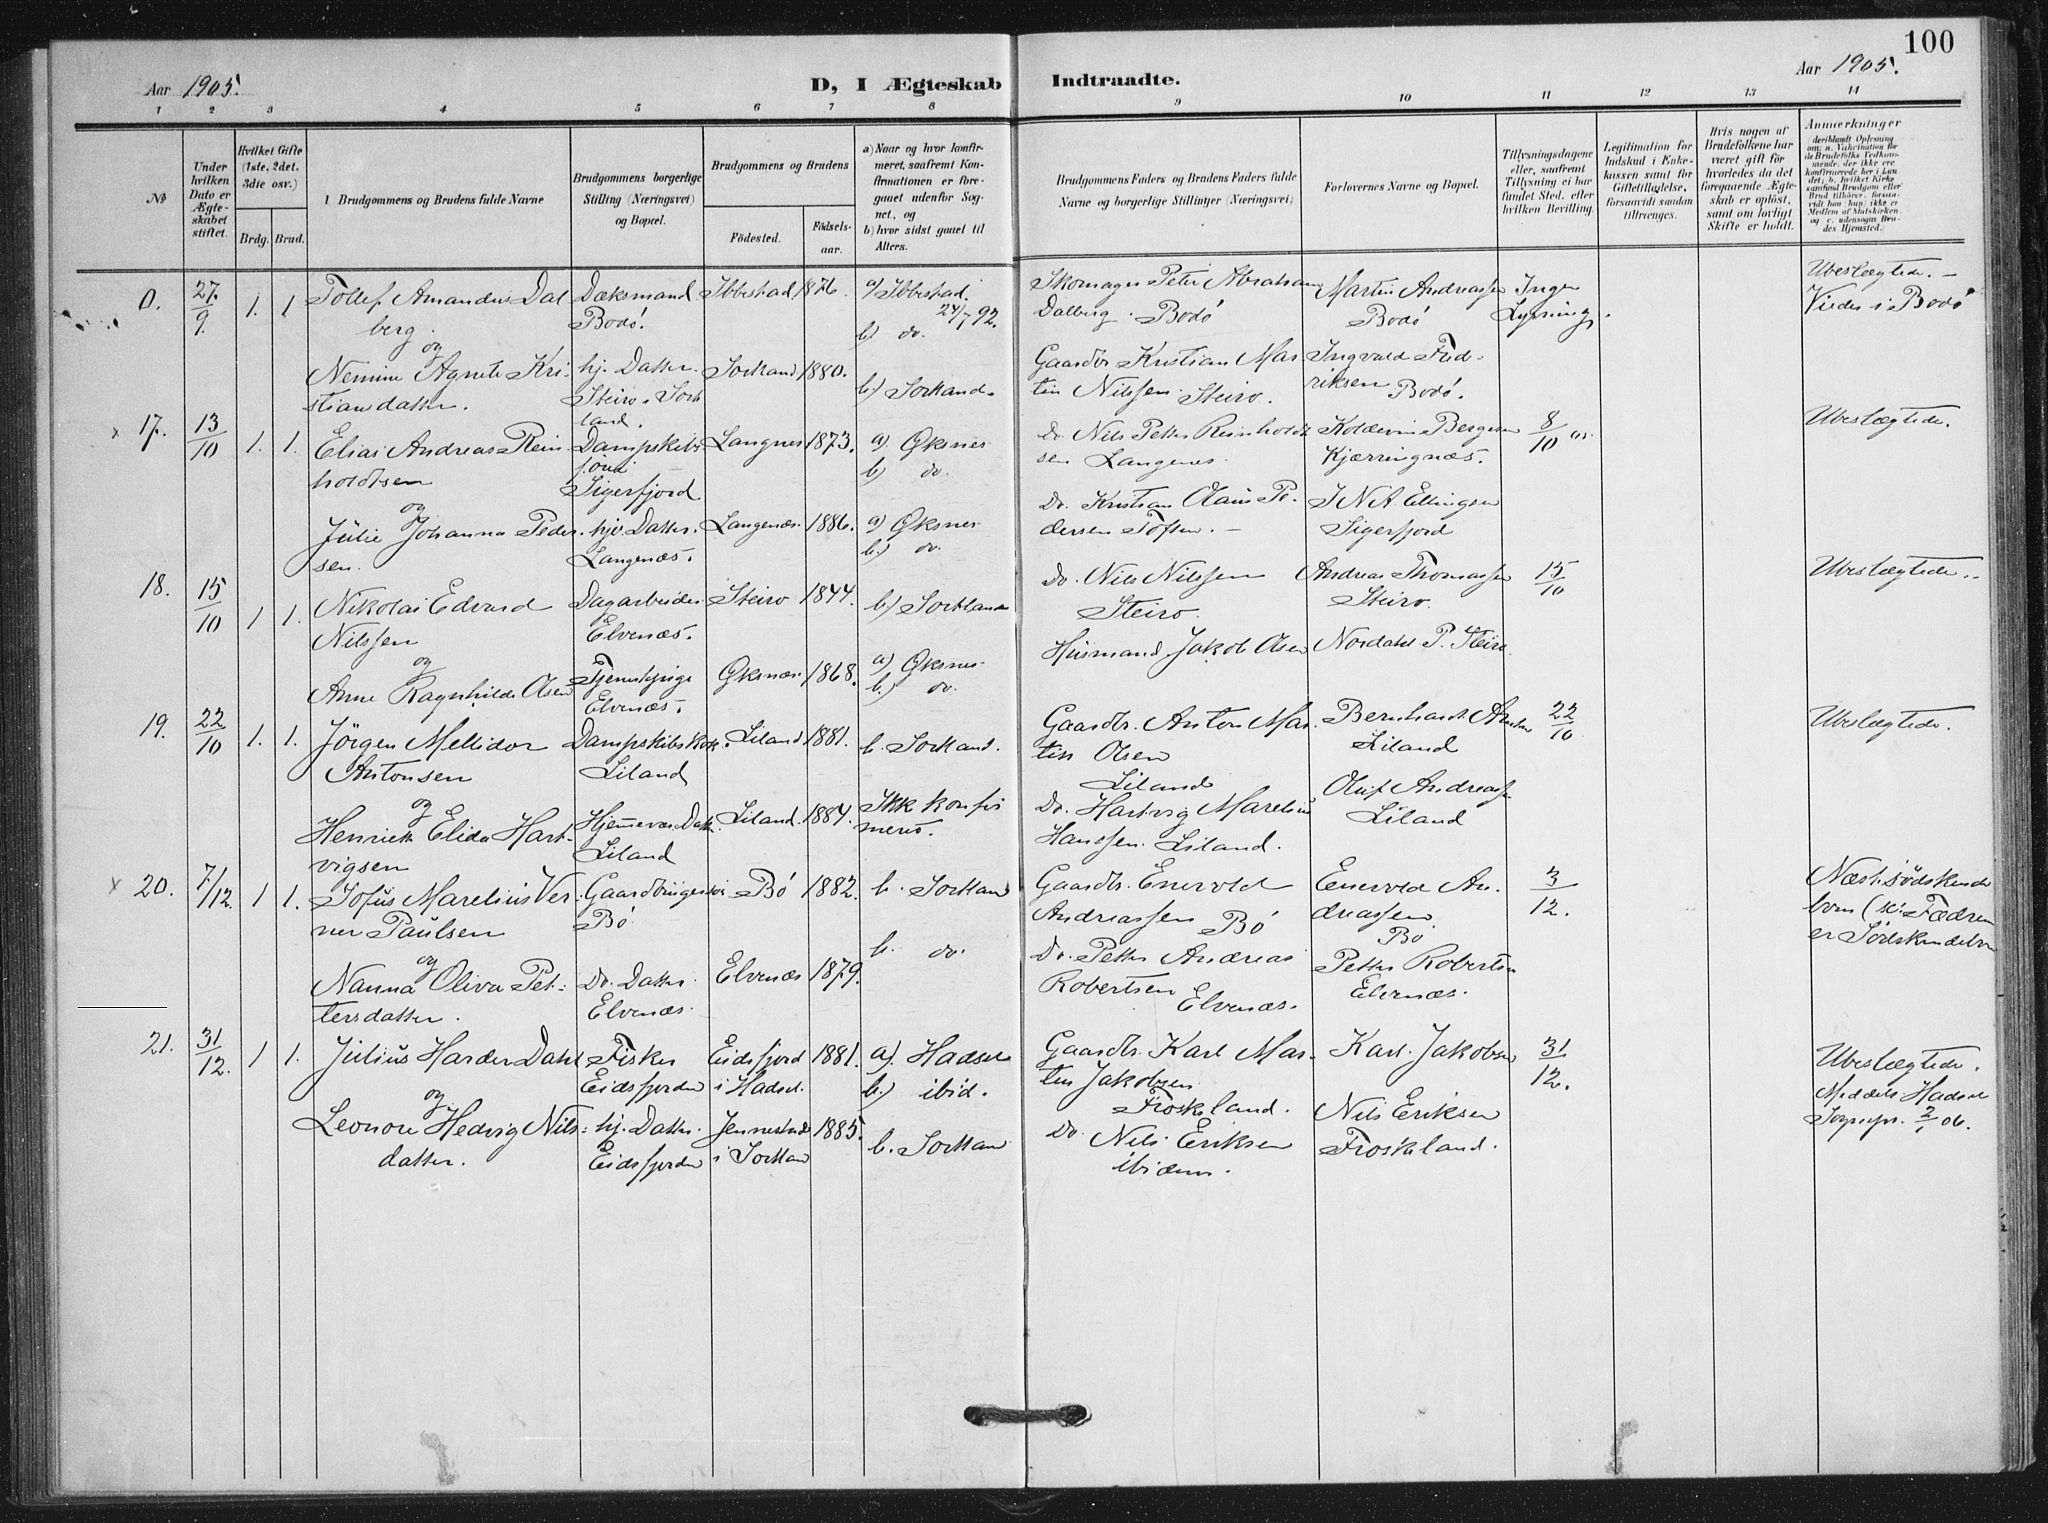 100
Aar 1905.
D, I Ægteskab Indtraadte.
Aar 1905.
1 2 3 4 5 6 7 8 9 10 11 12 13 14
№
Under hvilken Dato er Ægteskabet stiftet.
Hvilket Gifte (1ste, 2det. 3die osv.)
Brdg. Brud.
Brudgommens og Brudens fulde Navne
Brudgommens borgerlige Stilling (Næringsvei) og Bopæl.
Brudgommens og Brudens
Födested.
Födselsaar.
a) Naar og hvor konfirmeret, saafremt Konfirmationen er foregaaet udenfor Sognet, og
b) hvor sidst gaaet til Alters.
Brudgommens Faders og Brudens Faders fulde Navne og borgerlige Stillinger (Næringsvei)
Forlovernes Navne og Bopæl.
Tillysningsdagene eller, saafremt Tillysning ei har fundet Sted, efter hvilken Bevilling.
Legitimation for Indskud i Enkekassen samt for Giftetilladelse, forsaavidt saadan tiltrænges.
Hvis nogen af Brudefolkene har været gift för hvorledes da det foregaaende Ægteskab er oplöst, samt om lovligt Skifte er holdt.
Anmærkninger
0. 27/9. 1. 1 Tollef Amandus Dalberg. Dæksmand Bodö. Ibbestad 1876. a) Ibbestad. 24/7 92. b) do. Skomager Peter Abraham Dalberg. Bodö Martin Andreassen Bodö Ingen Lysning. Ubeslægtede. – Viedes i Bodö
og
Nemine Agnete Kristiansdatter. hj. Datter. Steiro. Sortland. Sortland 1880. b.) Sortland. Gaardbr Kristian Martin Nilssen. Steiro. Ingvald Fredriksen Bodö.
x 17. 13/10 1. 1. Elias Andreas Reinholdtsen Sigerfjord Langnes 1873. a) Øksnes b) do. Do. Nils Petter Reinholdtsen Langenes. Koldevin Bergersen Kjærringnæs. 8/10 05. Ubeslægtede.
og
Julie Johanna Pedersen. hjv. Datter. Langenæs. Langenæs. 1886. a) Øksnes b.) do. Do. Kristian Olaus Pedersen Toften. – I N A Ellingsen Sigerfjord
18. 15/10 1 1. Nikolai Edvard Nilssen Dagarbeider. Elvenæs. Steiro 1844. b.) Sortland Do. Nils Nilssen Steiro. Andreas Thomassen Steiro. 15/10 Ubeslægtede.
og
Anne Ragnhilde Olsen Tjenestepige Elvenæs. Øksnæs. 1868. a) Øksnes. b.) do. Husmand Jakob Olsen Nordahl P. Steiro
19. 22/10 1. 1. Jörgen Mellidor Antonsen Dampskibskok. Liland Liland 1881. b. Sortland. Gaardbr. Anton Martin Olsen Liland Bernhardt Liland 22/10 Ubeslægtede.
og
Henrick Elida Hartvigsen Hjemmev. Datt. Liland Liland. 1884. Ikk konfirmeret. Do. Hartvig Marelius Hanssen. Liland. Oluf Andreassen Liland
x 20. 7/12. 1 1. Sofus Marelius Verner Paulsen Bö Bö 1882. b. Sortland Gaardbr. Enevold Andreassen Bö Enevold Andreassen. Bö 3/12. Næstsödskendebörn (sc: Fædrene er Södskendebörn
og
Nanna Oliva Pettersdatter. Do. Datter. Elvenæs. Elvenæs 1879. b. do. Do. Petter Andreas Robertsen Elvenæs. Petter Robertsen Elvenæs.
21. 31/12. 1 1. Julius Harder Dahl Fisker Eidsfjorden Eidsfjord i Hadsel 1881. a). Hadsel b.) ibid. Gaardbr. Karl Martin Jakobsen Froskeland. Karl Jakobsen 31/12. Ubeslægtede. Meddelt Hadsel Sognepr. 2/1 06.
og
Leonore Hedvig Nilsdatter. hj. Datter. Eidsfjorden Jennestad i Sortland 1885. b. Sortland Do. Nils Eriksen ibidem. Nils Eriksen Froskeland.